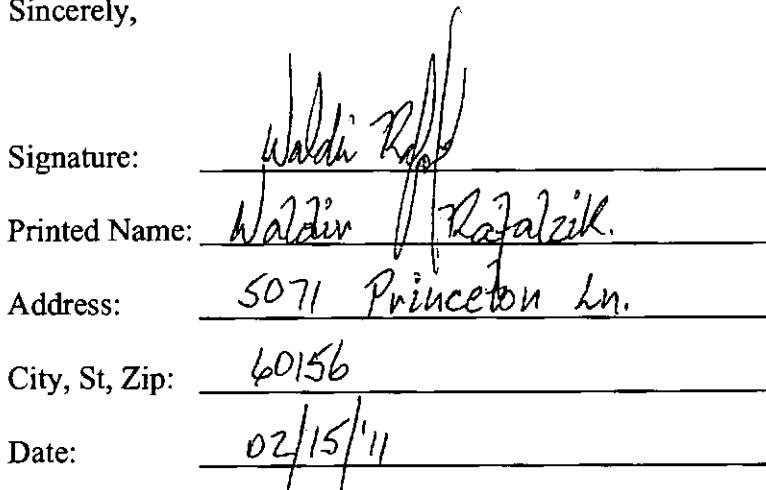 Sincerely,
Signature: Waldir
Printed Name: Waldir Rafalzik.
Address: 5071 Princeton Ln.
City, St, Zip: 60156
Date: 02/15/'11